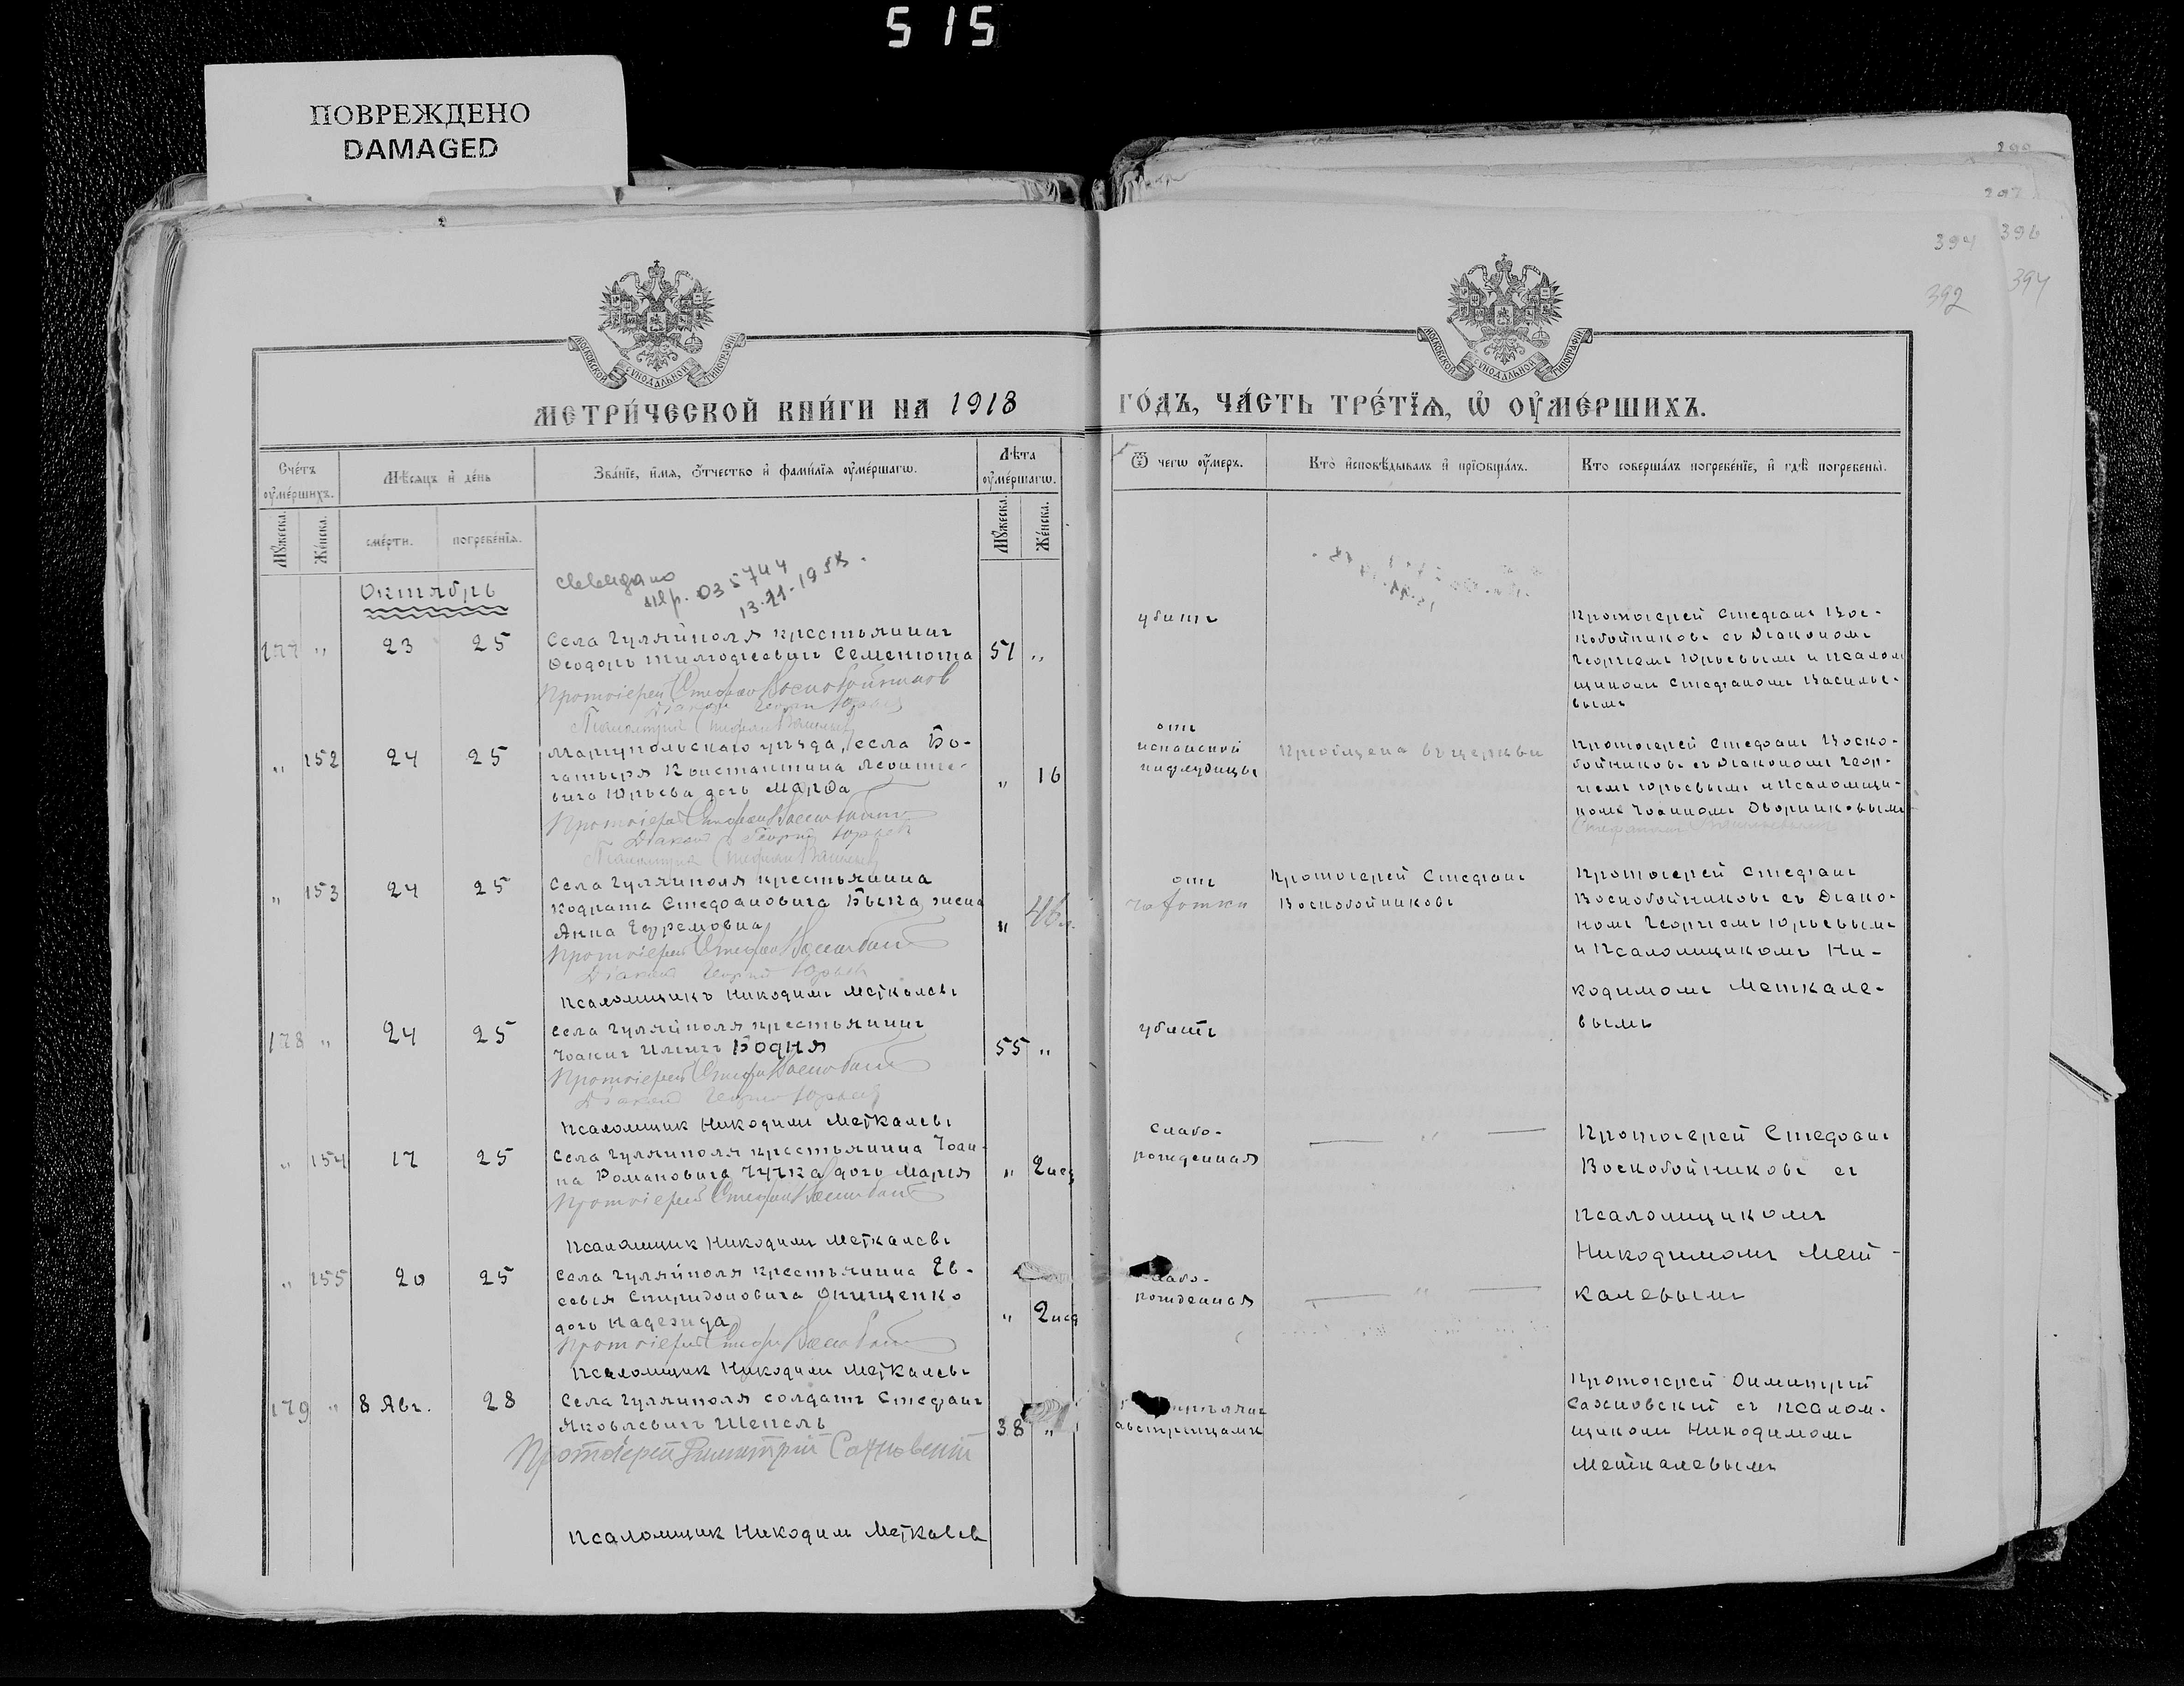 515
ПОВРЕЖДЕНО
DAMAGED
290
297
394 396
392 394
МОСКОВСКОЙ СѴНОДАЛЬНОЙ ТИПОГРАФІИ
МОСКОВСКОЙ СѴНОДАЛЬНОЙ ТИПОГРАФІИ
МЕТРИ́ЧЕСКОЙ КНИ́ГИ НА 1918 ГО́ДЪ, ЧА́СТЬ ТРЕ́ТЇѦ, Ѡ҆ ОУ҆МЕ́РШИХЪ.
Сче́тъ оу҆ме́ршихъ.
Мѣ́сяцъ и҆ де́нь
Зва́нїе, и҆́мѧ, ѻ҆́тчество и҆ фами́лїѧ оу҆ме́ршагѡ.
Лѣ́та оу҆ме́ршагѡ.
Ѿ чегѡ̀ оу҆́меръ.
Кто̀ и҆сповѣ́дывалъ и҆ прїѡбща́лъ.
Кто̀ соверша́лъ погребе́нїе, и҆ гдѣ̀ погребены̀.
Мꙋ́жеска.
Же́нска.
сме́рти.
погребе́нїѧ.
Мꙋ́жеска.
Же́нска.
Октябрь
035744
13.11.1958.
177 " 23 25
Села Гуляйполя крестьянинъ
Ѳеодоръ Тимоѳеевичъ Семенюта 51 "
Протоіерей Стефан Воскобойников
Діакон Георгій Юрьев
Псаломщик Стефан Васильев
убитъ
Протоіерей Стефанъ Вос-
кобойниковъ съ Діакономъ
Георгіемъ Юрьевымъ и псалом
щикомъ Стефаномъ Василье-
вымъ
" 152 24 25
Маріупольскаго уѣзда, села Бо-
гатыря Константина Леонтье-
вича Юрьева дочь Марѳа " 16
Протоіерей Стефан Воскобойников
Діакон Георгій Юрьев
Псаломщик Стефан Васильев
отъ
испанской
инфлуэнцы
Пріобщена въ церкви
Протоіерей Стефанъ Воско-
бойниковъ съ Діакономъ Геор-
гіемъ Юрьевымъ и Псаломщи-
комъ Іоанномъ Дворниковымъ
" 153 24 25
Села Гуляйполя крестьянина
Кодрата Стефановича Быка жена
Анна Ефремовна " 46
Протоіерей Стефан Воскобойников
Діакон Георгій Юрьев
Псаломщикъ Никодимъ Меткалевъ
отъ
чахотки
Протоіерей Стефанъ
Воскобойниковъ
Протоіерей Стефанъ
Воскобойниковъ съ Діако-
номъ Георгіемъ Юрьевымъ
и Псаломщикомъ Ни-
кодимомъ Меткале-
вымъ
178 " 24 25
Села Гуляйполя крестьянинъ
Іоакимъ Ильичъ Бодня 55 "
Протоіерей Стефан Воскобойников
Діакон Георгій Юрьев
Псаломщик Никодимъ Меткалевъ
убитъ
" 154 17 25
Села Гуляйполя крестьянина Іоан-
на Романовича Чучка дочь Марія " 2 мес
Протоіерей Стефан Воскобойников
Псаломщик Никодимъ Меткалевъ
Слабо-
рожденная
"
Протоіерей Стефанъ
Воскобойниковъ съ
Псаломщикомъ
Никодимомъ Мет-
калевымъ
" 155 20 25
Села Гуляйполя крестьянина Ев-
севія Спиридоновича Онищенко
дочь Надежда " 2 мес
Протоіерей Стефан Воскобойников
Псаломщик Никодимъ Меткалевъ
лабо-
рожденная
"
179 " 8 Авг. 28
Села Гуляйполя солдатъ Стефанъ
Яковлевичъ Шепель 38 "
Протоіерей Димитрій Сахновскій
Псаломщик Никодим Меткалев
австрійцами
Протоіерей Димитрій
Сахновскій съ псалом-
щикомъ Никодимомъ
Меткалевымъ